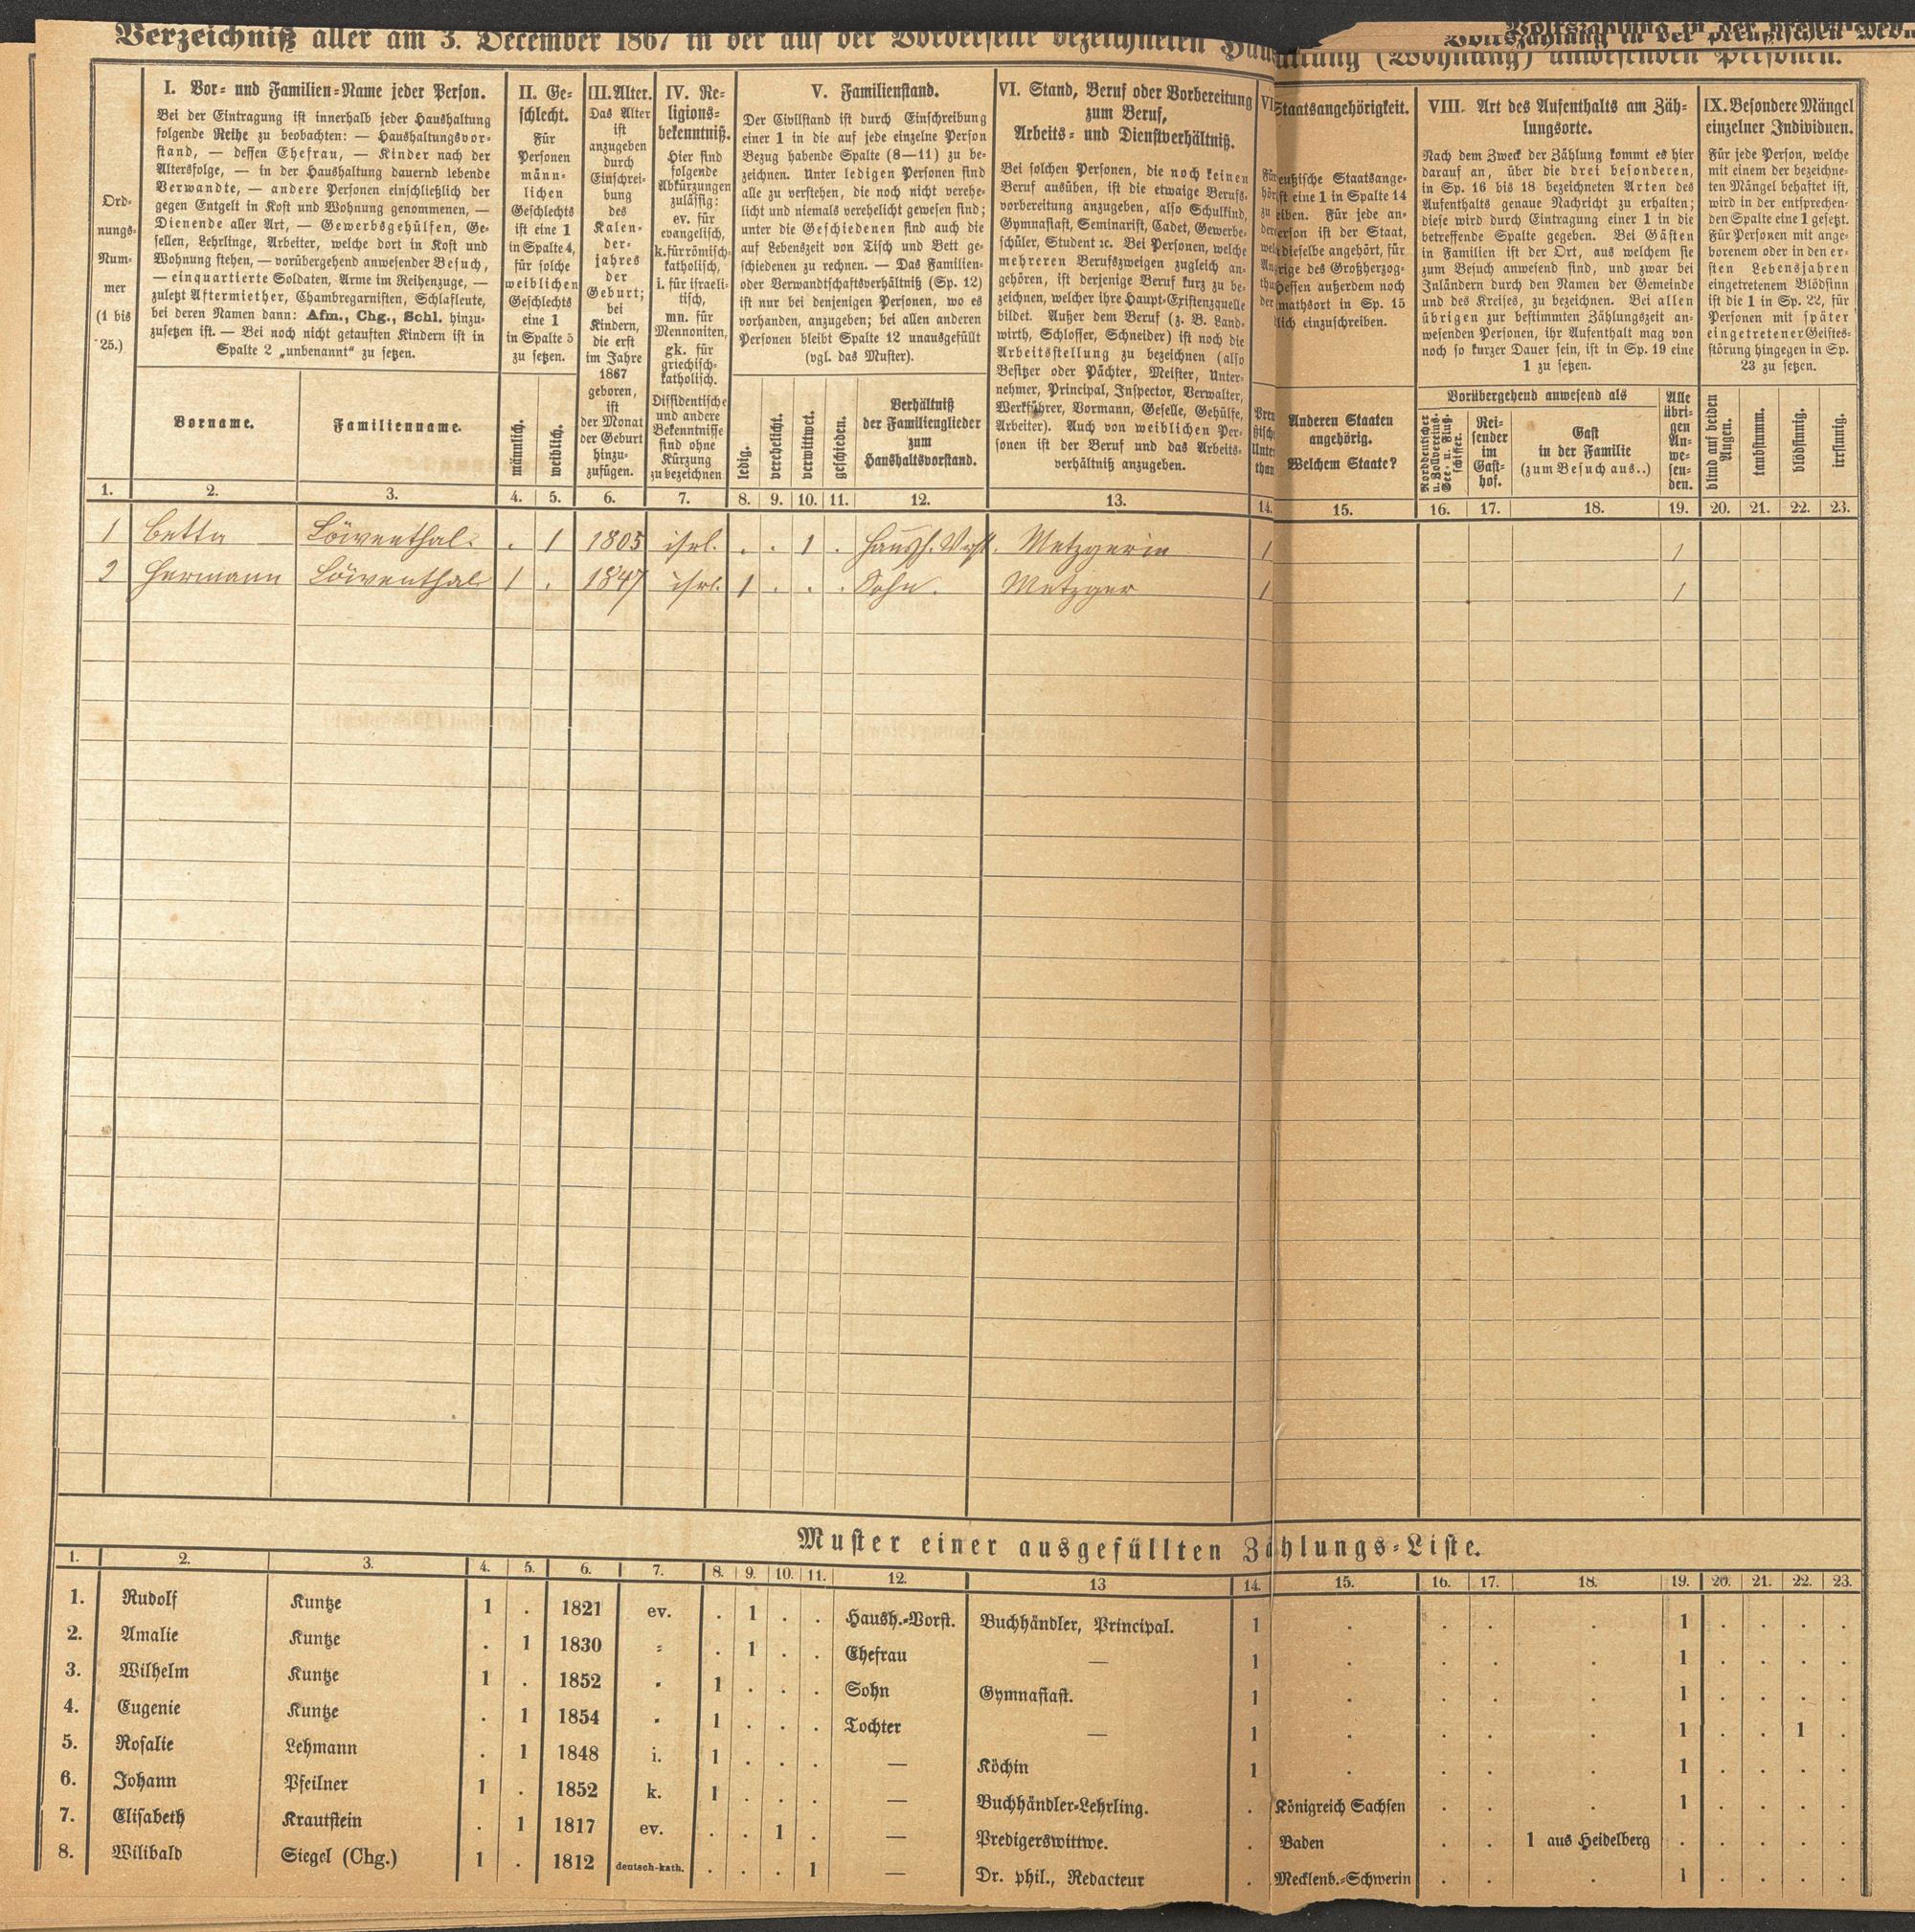 Verzeichniß aller am 3. December 1867 in der auf der Vorderseite bezeichneten Haushaltung (Wohnung) anwesenden Personen.
Ord-
nungs-
Num-
mer
(1 bis
25.)
I. Vor- und Familien-Name jeder Person.
Bei der Eintragung ist innerhalb jeder Haushaltung
folgende Reihe zu beobachten: — Haushaltungsvor-
stand, — dessen Ehefrau, — Kinder nach der
Altersfolge, — in der Haushaltung dauernd lebende
Verwandte, — andere Personen einschließlich der
gegen Entgelt in Kost und Wohnung genommenen, —
Dienende aller Art, — Gewerbsgehülfen, Ge-
sellen, Lehrlinge, Arbeiter, welche dort in Kost und
Wohnung stehen, — vorübergehend anwesender Besuch,
— einquartierte Soldaten, Arme im Reihenzuge, —
zuletzt Aftermiether, Chambregarnisten, Schlafleute,
bei deren Namen dann: Afm., Chg., Schl. hinzu-
zusetzen ist. — Bei noch nicht getauften Kindern ist in
Spalte 2 „unbenannt“ zu setzen.
Vorname. Familienname.
II. Ge-
schlecht.
Für
Personen
männ-
lichen
Geschlechts
ist eine 1
in Spalte 4,
für solche
weiblichen
Geschlechts
eine 1
in Spalte 5
zu setzen.
männlich. weiblich.
III. Alter.
Das Alter
ist
anzugeben
durch
Einschrei-
bung
des
Kalen-
der-
jahres
der
Geburt;
bei
Kindern,
die erst
im Jahre
1867
geboren,
ist
der Monat
der Geburt
hinzu-
zufügen.
IV. Re-
ligions-
bekenntniß.
Hier sind
folgende
Abkürzungen
zulässig:
ev. für
evangelisch,
k. für römisch-
katholisch,
i. für israeli-
tisch,
mn. für
Mennoniten,
gk. für
griechisch-
katholisch.
Dissidentische
und andere
Bekenntnisse
sind ohne
Kürzung
zu bezeichnen
V. Familienstand.
Der Civilstand ist durch Einschreibung
einer 1 in die auf jede einzelne Person
Bezug habende Spalte (8—11) zu be-
zeichnen. Unter ledigen Personen sind
alle zu verstehen, die noch nicht verehe-
licht und niemals verehelicht gewesen sind;
unter die Geschiedenen sind auch die
auf Lebenszeit von Tisch und Bett ge-
schiedenen zu rechnen. — Das Familien-
oder Verwandtschaftsverhältniß (Sp. 12)
ist nur bei denjenigen Personen, wo es
vorhanden, anzugeben; bei allen anderen
Personen bleibt Spalte 12 unausgefüllt
(vgl. das Muster).
ledig. verehelicht. verwittwet. geschieden.
Verhältniß
der Familienglieder
zum
Haushaltsvorstand.
VI. Stand, Beruf oder Vorbereitung
zum Beruf,
Arbeits- und Dienstverhältniß.
Bei solchen Personen, die noch keinen
Beruf ausüben, ist die etwaige Berufs-
vorbereitung anzugeben, also Schulkind,
Gymnasiast, Seminarist, Cadet, Gewerbe-
schüler, Student ꝛc. Bei Personen, welche
mehreren Berufszweigen zugleich an-
gehören, ist derjenige Beruf kurz zu be-
zeichnen, welcher ihre Haupt-Existenzquelle
bildet. Außer dem Beruf (z. B. Land-
wirth, Schlosser, Schneider) ist noch die
Arbeitsstellung zu bezeichnen (also
Besitzer oder Pächter, Meister, Unter-
nehmer, Principal, Inspector, Verwalter,
Werkführer, Vormann, Geselle, Gehülfe,
Arbeiter). Auch von weiblichen Per-
sonen ist der Beruf und das Arbeits-
verhältniß anzugeben.
Staatsangehörigkeit.
Anderen Staaten
angehörig.
Welchem Staate?
VIII. Art des Aufenthalts am Zäh-
lungsorte.
Nach dem Zweck der Zählung kommt es hier
darauf an, über die drei besonderen,
in Sp. 16 bis 18 bezeichneten Arten des
Aufenthalts genaue Nachricht zu erhalten;
diese wird durch Eintragung einer 1 in die
betreffende Spalte gegeben. Bei Gästen
in Familien ist der Ort, aus welchem sie
zum Besuch anwesend sind, und zwar bei
Inländern durch den Namen der Gemeinde
und des Kreises, zu bezeichnen. Bei allen
übrigen zur bestimmten Zählungszeit an-
wesenden Personen, ihr Aufenthalt mag von
noch so kurzer Dauer sein, ist in Sp. 19 eine
1 zu setzen.
Vorübergehend anwesend als
Norddeutscher
u. Zollvereins-
See- u. Fluß-
schiffer.
Rei-
sender
im
Gast-
hof.
Gast
in der Familie
(zum Besuch aus..)
Alle
übri-
gen
An-
we-
sen-
den.
IX. Besondere Mängel
einzelner Individuen.
Für jede Person, welche
mit einem der bezeichne-
ten Mängel behaftet ist,
wird in der entsprechen-
den Spalte eine 1 gesetzt.
Für Personen mit ange-
borenem oder in den er-
sten Lebensjahren
eingetretenem Blödsinn
ist die 1 in Sp. 22, für
Personen mit später
eingetretener Geistes-
störung hingegen in Sp.
23 zu setzen.
blind auf beiden Augen. taubstumm. blödsinnig. irrsinnig.
1. 2. 3. 4. 5. 6. 7. 8. 9. 10. 11. 12. 13. 14. 15. 16. 17. 18. 19. 20. 21. 22. 23.
1 Betta Löwenthal . 1 1805 isrl. . . 1 . Haush. Vorst. Metzgerin 1 1
2 Hermann Löwenthal 1 . 1847 isrl. 1 . . . Sohn. Metzger 1 1
Muster einer ausgefüllten Zählungs-Liste.
1. 2. 3. 4. 5. 6. 7. 8. 9. 10. 11. 12. 13 14. 15. 16. 17. 18. 19. 20. 21. 22. 23.
1. Rudolf Kuntze 1 . 1821 ev. . 1 . . Haush.-Vorst. Buchhändler, Principal. 1 . . . . 1 . . . .
2. Amalie Kuntze . 1 1830 „ . 1 . . Ehefrau — 1 . . . . 1 . . . .
3. Wilhelm Kuntze 1 . 1852 „ 1 . . . Sohn Gymnasiast. 1 . . . . 1 . . . .
4. Eugenie Kuntze . 1 1854 „ 1 . . . Tochter — 1 . . . . 1 . . 1 .
5. Rosalie Lehmann . 1 1848 i. 1 . . . — Köchin 1 . . . . 1 . . . .
6. Johann Pfeilner 1 . 1852 k. 1 . . . — Buchhändler-Lehrling. . Königreich Sachsen . . . 1 . . . .
7. Elisabeth Krautstein . 1 1817 ev. . . 1 . — Predigerswittwe. . Baden . . 1 aus Heidelberg . . . . .
8. Wilibald Siegel (Chg.) 1 . 1812 deutsch-kath. . . . 1 — Dr. phil., Redacteur . Mecklenb.-Schwerin . . . 1 . . . .